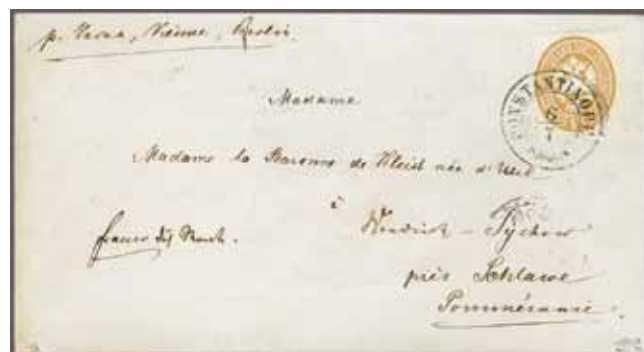 p. Varna, Vienne, Berlin.
CONSTANTINOPEL
6
7
Madame
Madame la Baronne de Kleist née
à
franco
Wendisch - Tychow
près Schlawe
Poméranie.